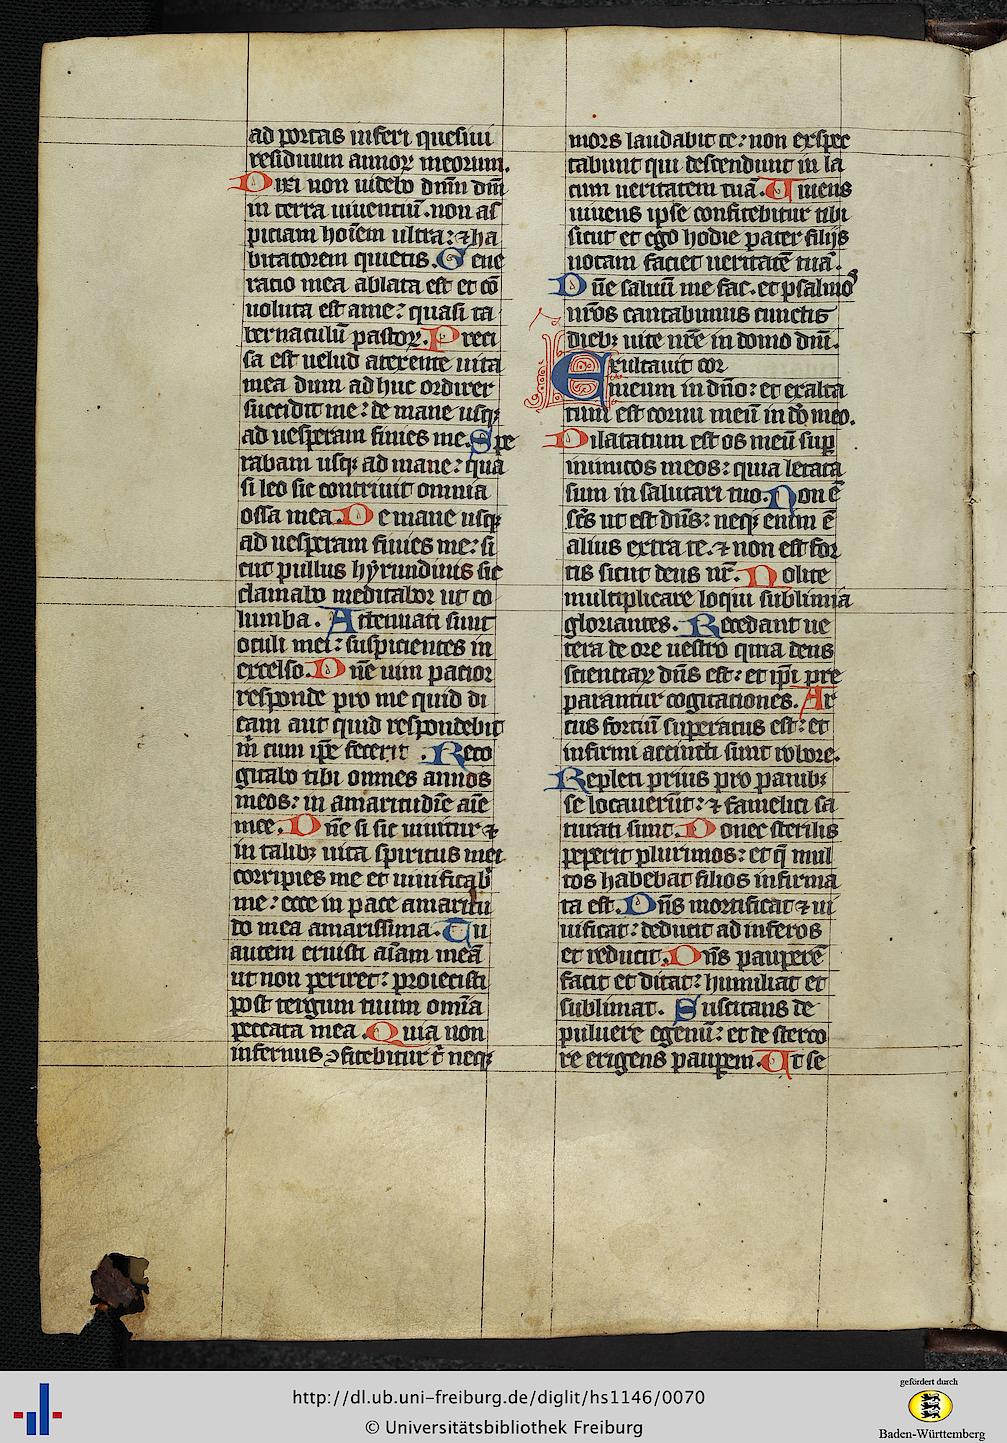 ad portas inferi quesiui
residuum annoꝝ meorum.
Dixi non uidebo dnm̄ dm̄
in terra uiuentiū. non as
piciam hoīem ultra: ⁊ ha
bitatorem quietis. Gene
ratio mea ablata est et cō
uoluta est a me: quasi ta
bernaculū pastoꝝ. Preci
sa est uelud a texente uita
mea dum ad huc ordirer
succidit me: de mane usqꝫ
ad uesperam finies me. Spe
rabam usqꝫ ad mane: qua
si leo sic contriuit omnia
ossa mea. De mane usqꝫ
ad uesperam finies me: si
cut pullus hyrundinis sic
clamabo meditabor ut co
lumba. Attenuati sunt
oculi mei: suspicientes in
excelso. Dn̄e uim patior
responde pro me quid di
cam aut quid respondebit
m̄ cum ip̄e fecerit. Reco
gitabo tibi omnes annos
meos: in amaritudīe aīe
mee. Dn̄e si sic uiuitur ⁊
in talibꝫ uita spiritus mei
corripies me et uiuificab'
me: ecce in pace amaritu
do mea amarissima. Tu
autem eruisti aīam meā
ut non periret: proiecisti
post tergum tuum omīa
peccata mea. Quia non
infernus ꝯfitebitur t̄ neqꝫ
mors laudabit te: non expec
tabunt qui descendunt in la
cum ueritatem tuā. Uiuens
uiuens ipse confitebitur tibi
sicut et ego hodie pater filijs
notam faciet ueritatē tuā.
Dn̄e saluū me fac. et psalmos
nr̄os cantabimus cunctis
diebꝫ uite nr̄e in domo dnī.
Exultauit cor
meum in dn̄o: et exalta
tum est cornu meū in dō meo.
Dilatatum est os meū suꝑ
inimicos meos: quia letata
sum in salutari tuo. Non ē
sc̄s ut est dn̄s: neqꝫ enim ē
alius extra te. ⁊ non est for
tis sicut deus nr̄. Nolite
multiplicare loqui sublimia
gloriantes. Recedant ue
tera de ore uestro quia deus
scientiaꝝ dn̄s est: et ip̄i pre
parantur cogitationes. Ar
cus fortiū superatus est: et
infirmi accincti sunt robore.
Repleti prius pro panibꝫ
se locauerūt: ⁊ famelici sa
turati sunt. Donec sterilis
peperit plurimos: et q̄ mul
tos habebat filios infirma
ta est. Dn̄s mortificat ⁊ ui
uificat: deducit ad inferos
et reducit. Dn̄s pauperē
facit et ditat: humiliat et
sublimat. Suscitans de
puluere egenū: et de sterco
re erigens pauꝑem. Ut se
http://dl.ub.uni-freiburg.de/diglit/hs1146/0070
© Universitätsbibliothek Freiburg
gefördert durch
Baden-Württemberg